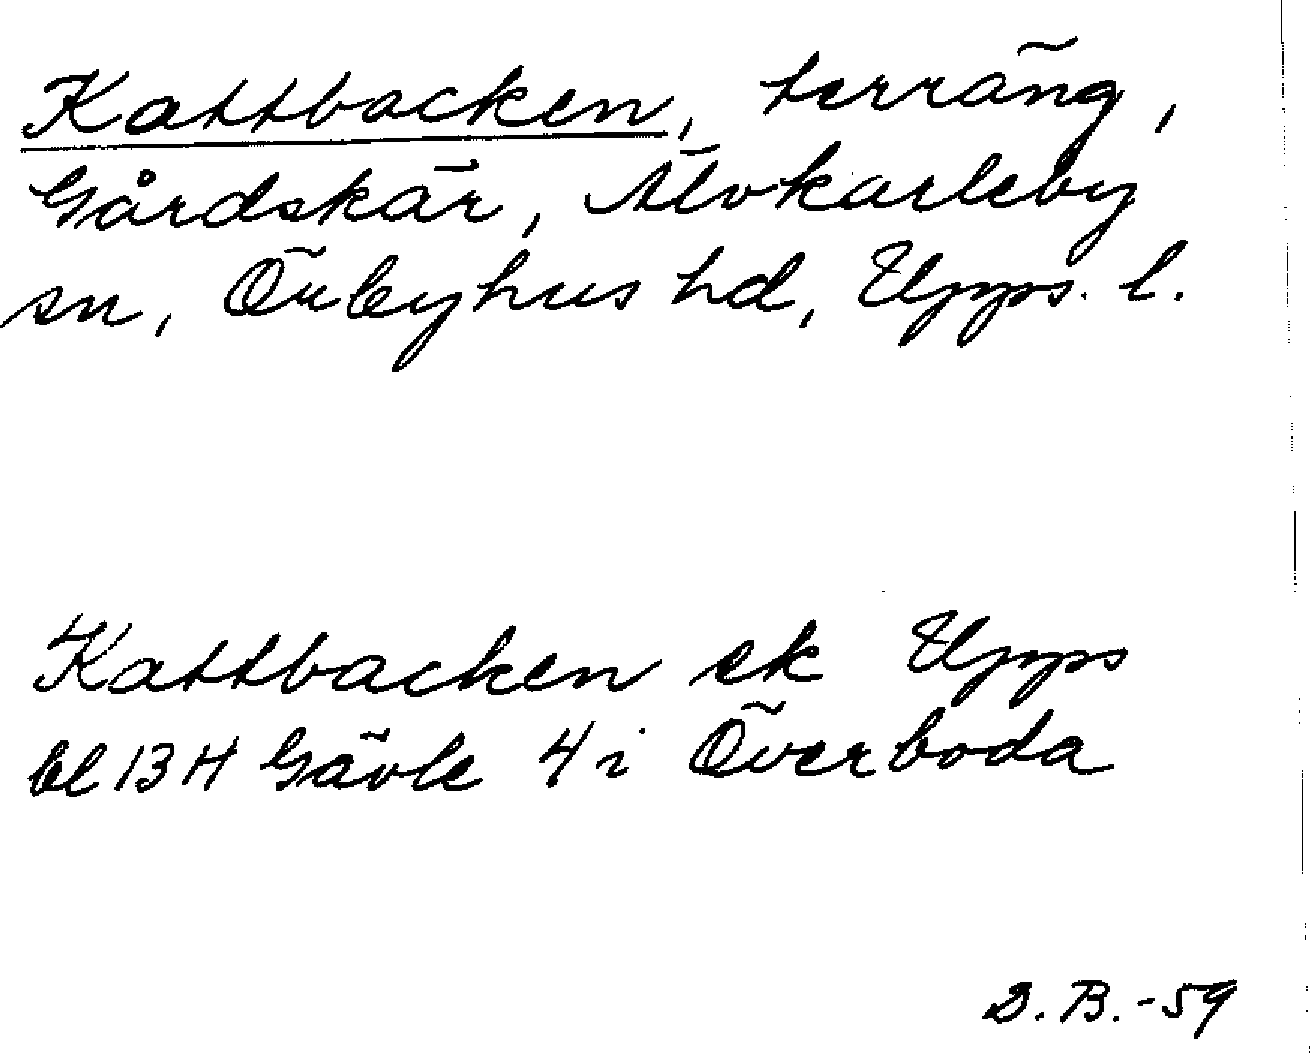 Kattbacken, terräng,
Gårdskär, Älvkarleby
sn, Örbyhus hd, Upps. l.
Kattbacken ek Upps
bl 13 H Gävle 4 i Överboda
D. B. -59